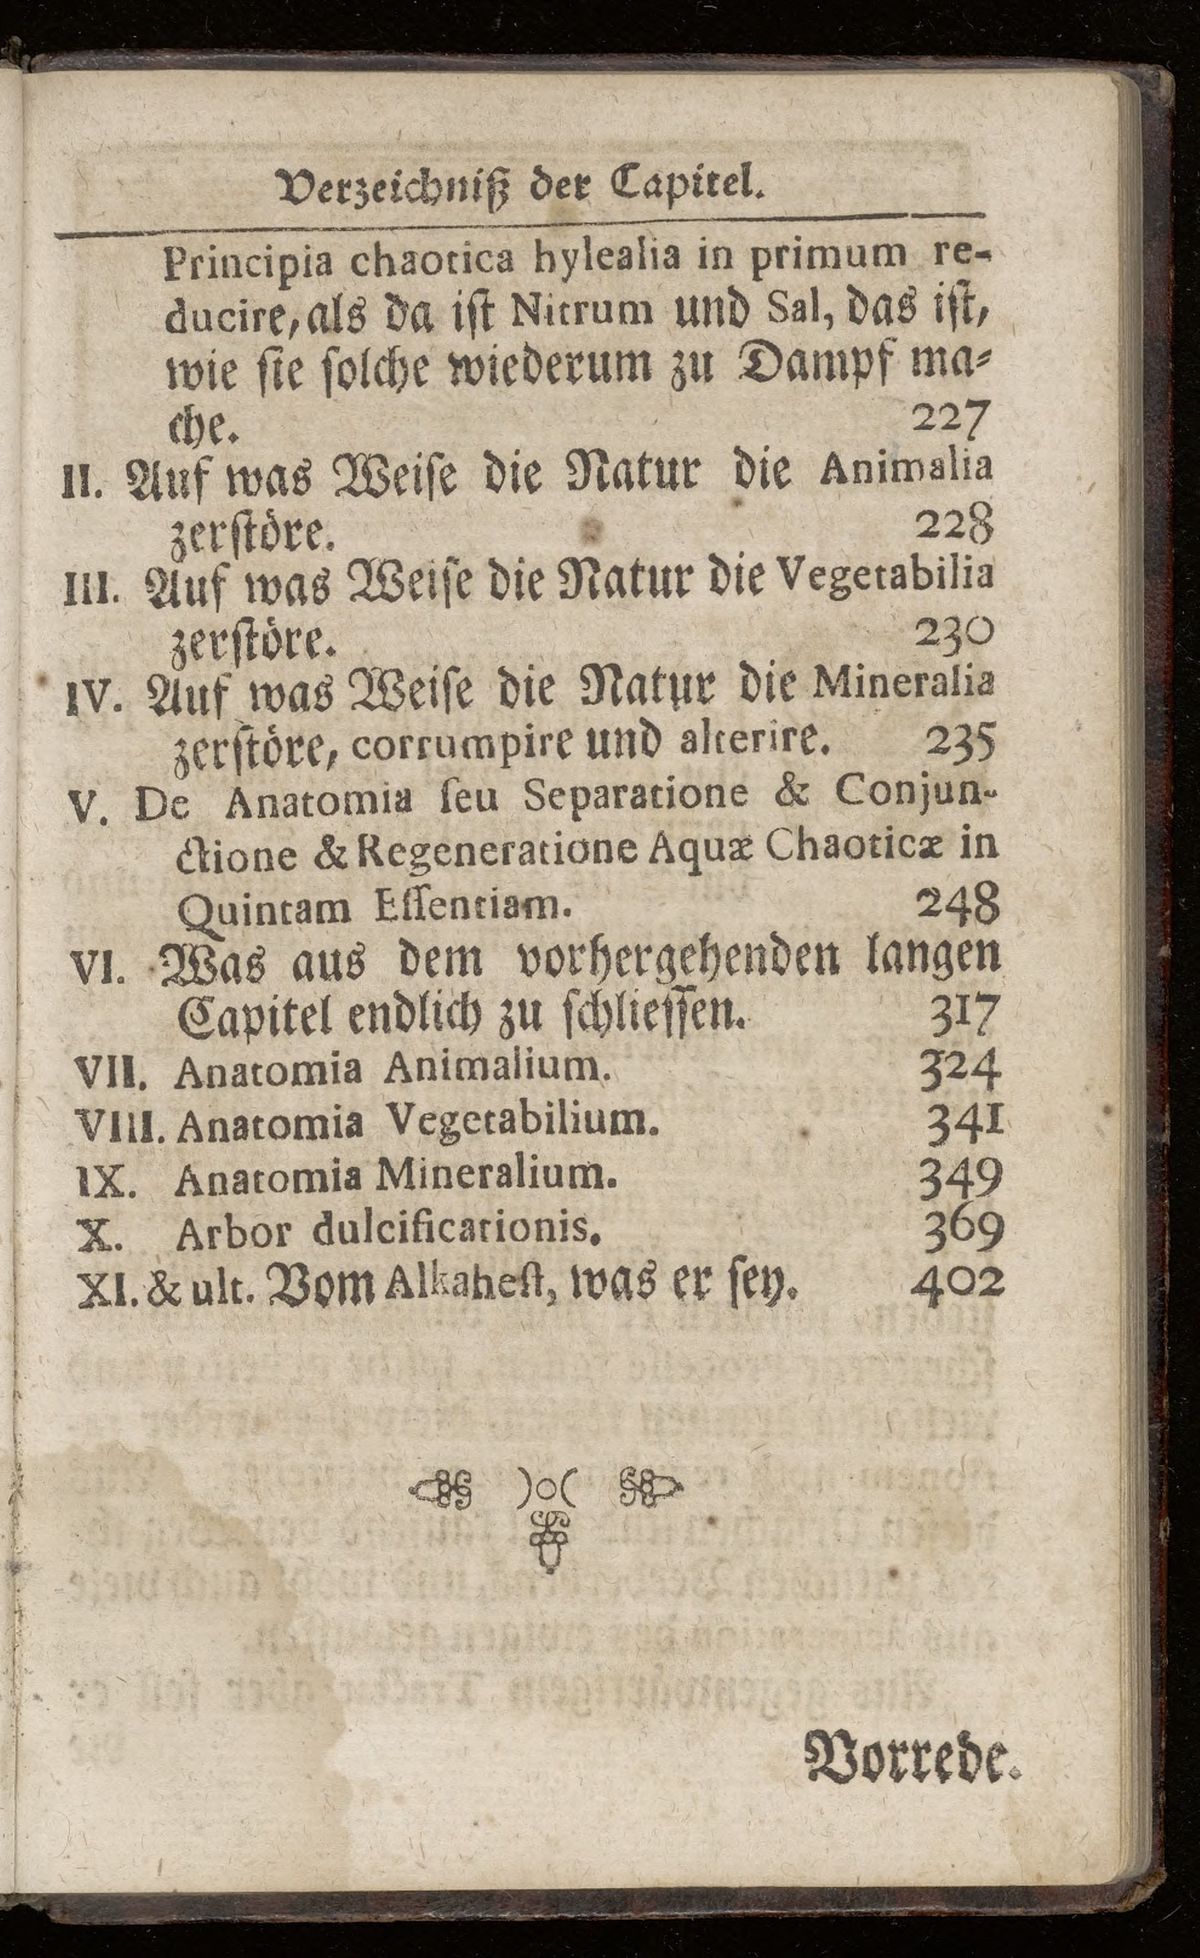 Verzeichniß der Capitel.
Principia chaotica hylealia in primum re-
ducire, als da ist Nitrum und Sal, das ist,
wie sie solche wiederum zu Dampf ma-
che. 227
II. Auf was Weise die Natur die Animalia
zerstöre. 228
III. Auf was Weise die Natur die Vegetabilia
zerstöre. 230
IV. Auf was Weise die Natur die Mineralia
zerstöre, corrumpire und alterire. 235
V. De Anatomia seu Separatione & Conjun-
ctione & Regeneratione Aquæ Chaoticæ in
Quintam Essentiam. 248
VI. Was aus dem vorhergehenden langen
Capitel endlich zu schliessen. 317
VII. Anatomia Animalium. 324
VIII. Anatomia Vegetabilium. 341
IX. Anatomia Mineralium. 349
X. Arbor dulcificationis. 369
XI. & ult. Vom Alkahest, was er sey. 402
Vorrede.